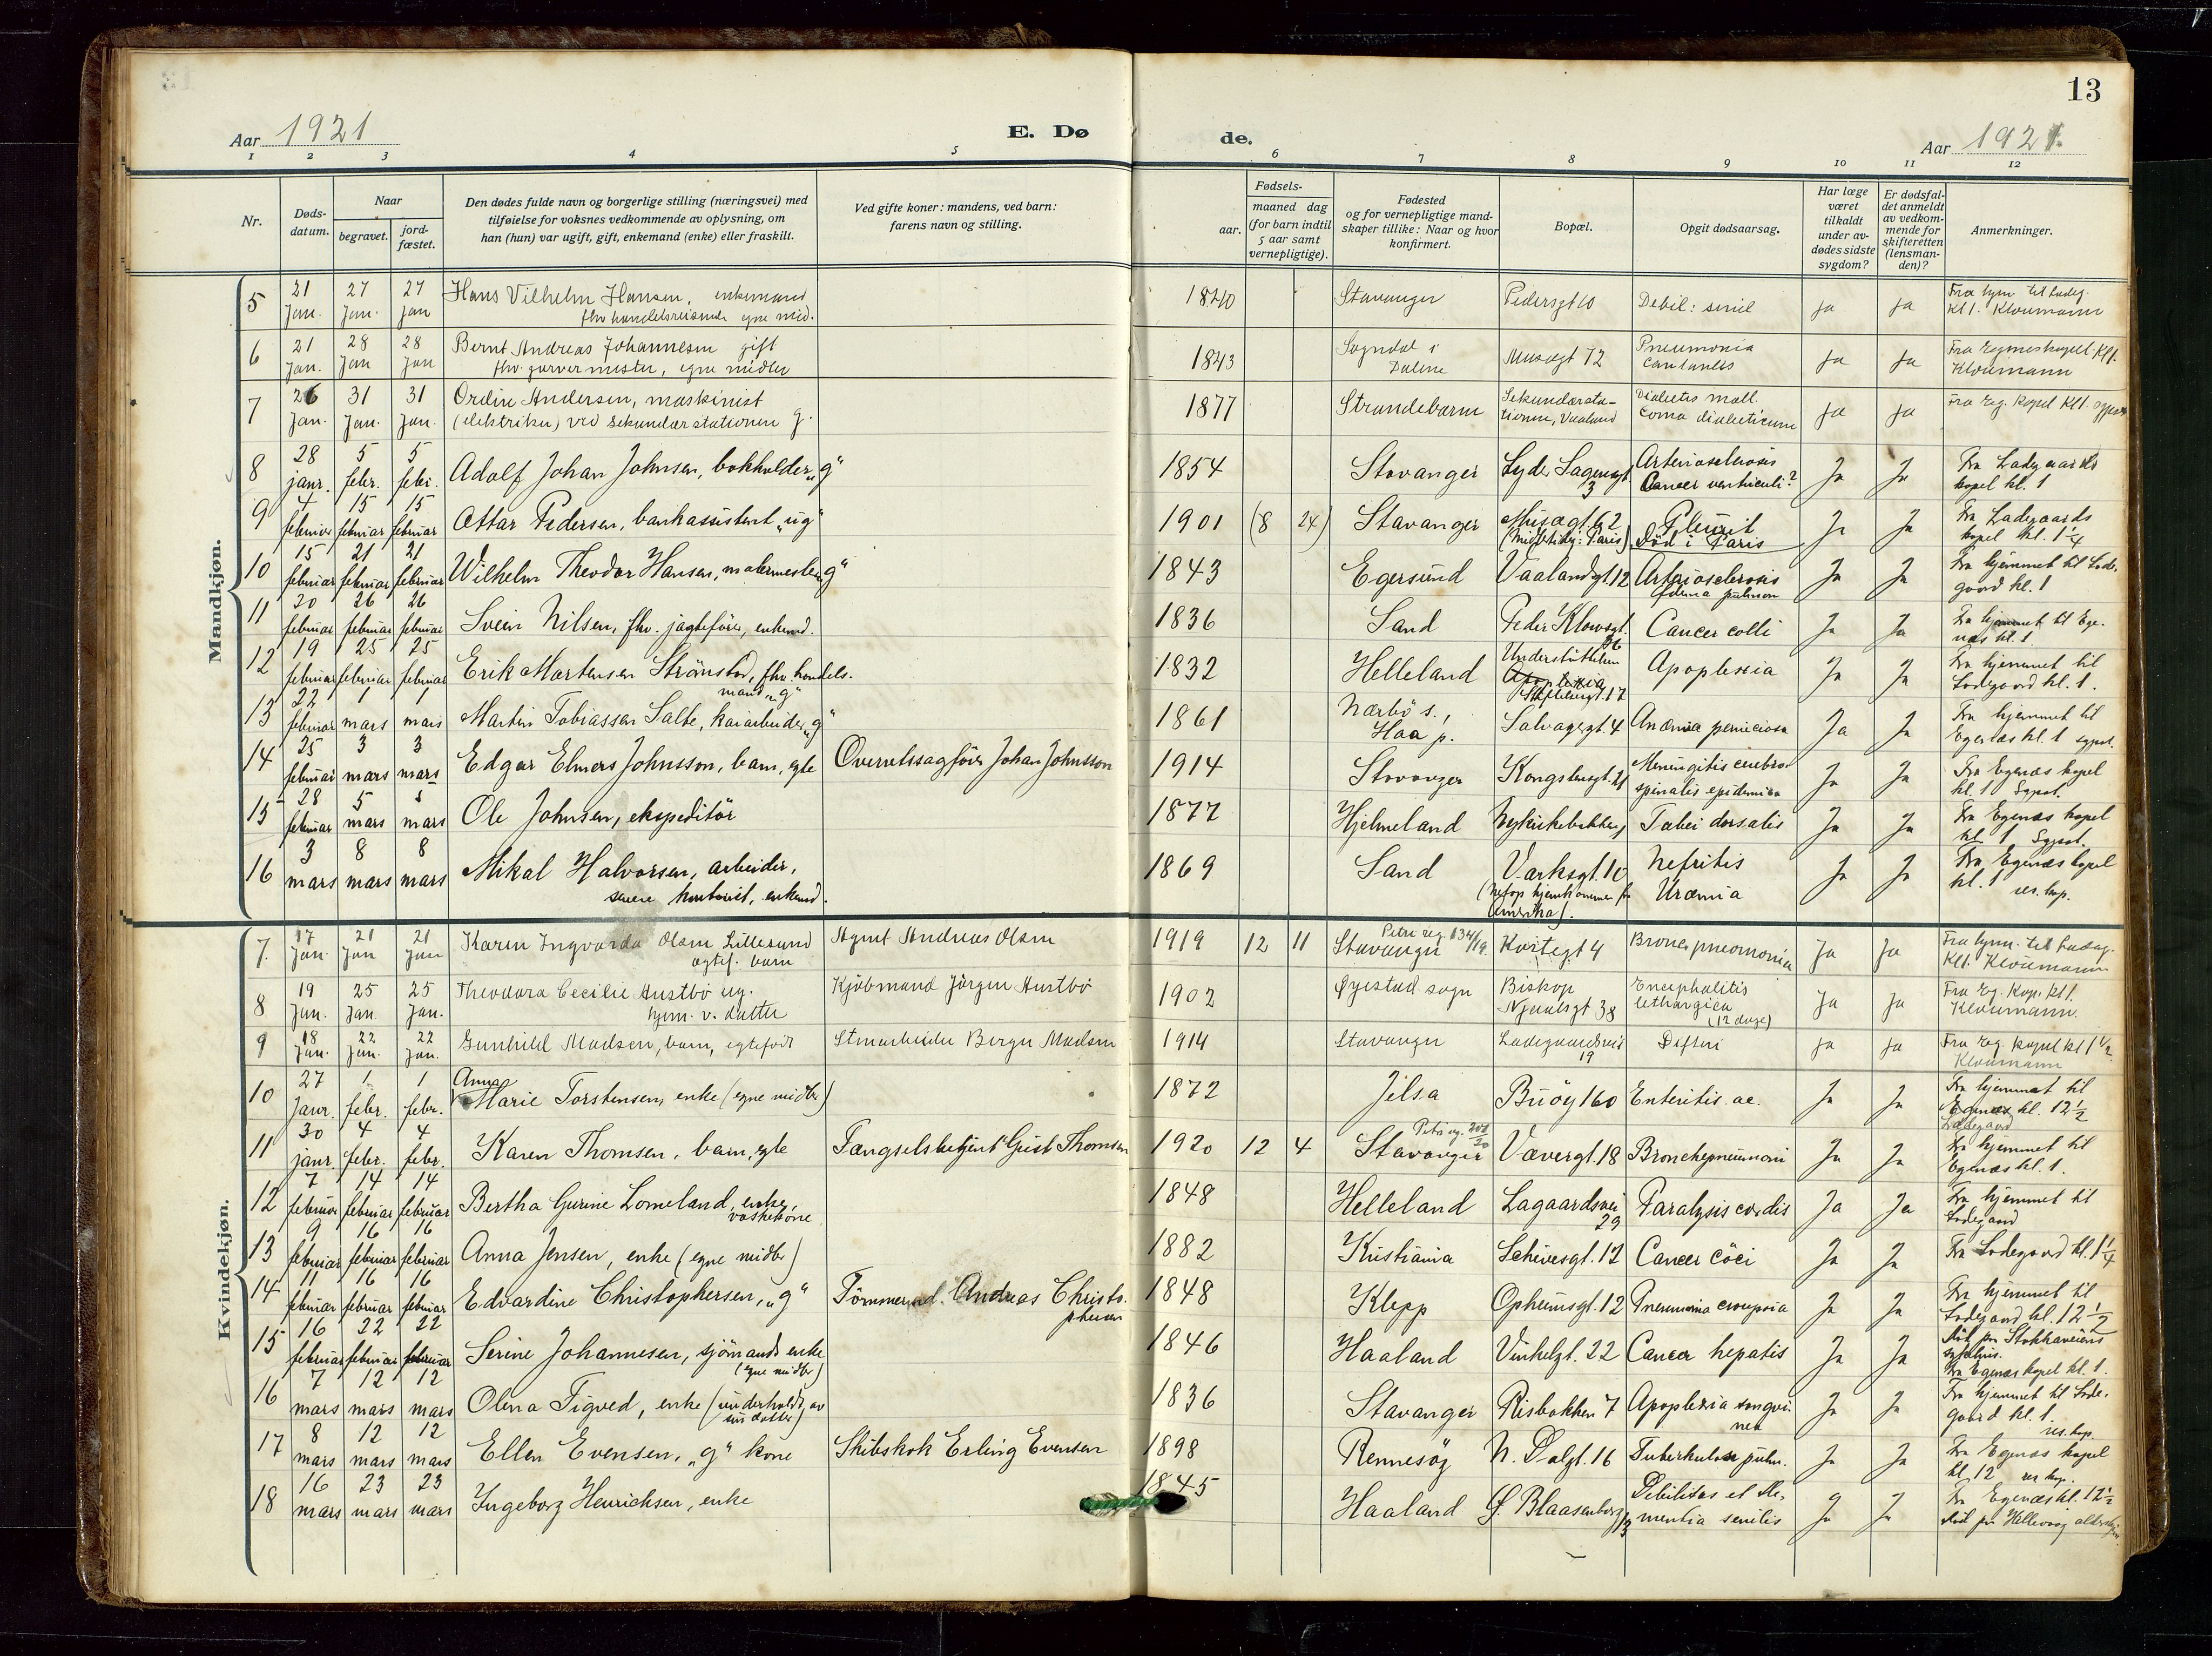 13
Aar 1921 E. Dø de. Aar 1921.
1 2 3 4 5 6 7 8 9 10 11 12
Nr. Døds-datum. Naar begravet. jord-fæstet. Den dødes fulde navn og borgerlige stilling (næringsvei) med tilføielse for voksnes vedkommende av oplysning, om han (hun) var ugift, gift, enkemand (enke) eller fraskilt. Ved gifte koner: mandens, ved barn: farens navn og stilling. Fødsels- aar. maaned dag (for barn indtil 5 aar samt vernepligtige). Fødested og for vernepligtige mand-skaper tillike: Naar og hvor konfirmert. Bopæl. Opgit dødsaarsag. Har læge været tilkaldt under av-dødes sidste sygdom? Er dødsfal-det anmeldt av vedkom-mende for skifteretten (lensman-den)? Anmerkninger.
Mandkjøn.
5 21 Jan. 27 Jan. 27 Jan Hans Vilhelm Hansen, enkemand fhv handelsreisende egne mid. 1840 Stavanger Pedersgt 10 Debil: senil ja ja Fra hjem til Ladeg. Kl 1. Kloumann
6 21 Jan. 28 Jan 28 Jan Bernt Andreas Johannesen gift fhv. garvermester, egne midler 1843 Sogndal i Dalene Musegt 72 Pneumonia ja ja Fra Egeneskapell Kl 1. Kloumann
7 26 Jan. 31 Jan. 31 Jan. Ordin Andersen, maskinist (elektriker) ved sekundærstationen g. 1877 Strandebarm Sekundærsta-tionen, Vaaland Diabetes mell. Coma diabeticum ja ja Fra Eg. Kapel Kl 1. sypost
8 28 janr. 5 febr. 5 febr. Adolf Johan Johnsen, bokholder, „g“ 1854 Stavanger Lyder Sagensgt 3 Arteriosclerosis Cancer ventriculi? Ja Ja Fra Ladegaards kapel kl. 1
9 4 februar 15 februar 15 februar Ottar Pedersen, bankassistent „ug“ 1901 (8 24) Stavanger Musægt. 62 (Midlertidig: Paris) Pleurit Død i Paris Ja Ja Fra Ladegaards kapel kl. 1 1/4
10 15 februar 21 februar 21 februar Wilhelm Theodor Hansen, malermester „g“ 1843 Egersund Vaalandsgt. 12 Arteriosclerosis Ødema pulmon Ja Ja Fra hjemmet til Lade-gaard kl. 1
11 20 februar 26 februar 26 februar Svein Nilsen, fhv. jagtefører, enkemd. 1836 Sand Peder Klowsgt. Cancer colli Ja Ja Fra hjemmet til Ege-næs kl. 1
12 19 februar 25 februar 25 februar Erik Martensen Strønstad, fhv. handels-mand, „g“ 1832 Helleland Understøttelsen Apoplexia Ja Ja Fra hjemmet til Ladegaard kl. 1.
13 22 februar 1 mars 1 mars Martin Tobiassen Salte, kaiarbeider „g“ 1861 Nærbø s., Haa p. Salvagergt. 4 Anæmia perniciosa Ja Ja Fra hjemmet til Egenæs kl. 1 sypst.
14 25 februar 3 mars 3 mars Edgar Elmers Johnsson, barn, egte Overretssagfører Johan Johnsson 1914 Stavanger Kongstensgt. 21 Meningitis cerebro spinalis epidemica Ja Ja Fra Egenæs kapel kl. 1 Sypst.
15 28 februar 5 mars 5 mars Ole Johnsen, ekspeditør 1877 Hjelmeland Nykirkebakken 1 Tabei dorsalis Ja Ja Fra Egenæs kapel kl. 1 Sypst.
16 3 mars 8 mars 8 mars Mikal Halvorsen, arbeider, enkemd. 1869 Sand Værksgt. 10 (netop hjemkommen fra Amerika). Nefritis Uræmia Ja Ja Fra Egenæs kapel kl. 1 res. kap.
Kvindekjøn.
7. 17 Jan. 21 Jan 21 Jan Karen Ingvarda Olsen Lillesund egtef. barn Agent Andreas Olsen 1919 12 11 Petri reg. 134/19. Stavanger Kvitegt 4 Bronc. pneumonia Ja Ja Fra hjem. til Ladeg. Kl 1. Kloumann
8 19 Jan. 25 Jan. 25 Jan. Theodora Cecilie Austbø ug. hjem. v. datter Kjøbmand Jørgen Austbø 1902 Øyestad sogn Biskop Njaalsgt 38 Encephalitis lethargica (12 dage) Ja Ja Fra Eg. Kap. kl 1. Kloumann.
9 18 Jan. 22 Jan. 22 Jan. Gunhild Madsen, barn, egtefødt Stenarbeider Berger Madsen 1914 Stavanger Ladegaardsvei 19 Difteri ja ja Fra Eg. kapel kl 1 1/2. Kloumann
10 27 Janr. 1 febr. 1 febr. Anna Marie Torstensen, enke (egne midler) 1872 Jelsa Buøy 160 Enteritis ac. Ja Ja Fra hjemmet til Egenæs kl. 12 1/2 Ladegaard
11 30 janr. 4 febr. 4 febr. Karen Thomsen, barn, egte Fængselsbetjent Thomsen 1920 12 4 Petri reg. Stavanger Vævergt. 18 Bronchopneumoni Ja Ja Fra hjemmet til Egenæs kl. 1.
12 7 februar 14 februar 14 februar Bertha Gurine Lomeland, enke, vaskekone 1848 Helleland Lagaardsvei 29 Paralysis cordis Ja Ja Fra hjemmet til Ladegaard
13 9 februar 16 februar 16 februar Anna Jensen, enke (egne midler) 1882 Kristiania Schivesgt. 12 Cancer cöci Ja Ja Fra Ladegaard kl. 1 1/4
14 11 februar 16 februar 16 februar Edvardine Christophersen, „g“ Tømmermd. Andreas Christo-phersen 1848 Klepp Opheimsgt. 12 Pneumonia crouposa Ja Ja Fra hjemmet til Ladegaard kl. 12 1/2
15 16 februar 22 februar 22 februar Serine Johannesen, sjømands enke (egne midler) 1846 Haaland Vinkelgt. 22 Cancer hepatis Ja Ja Død paa Stokkaveiens sykehus. Fra Egenæs kapel kl. 1.
16 7 mars 12 mars 12 mars Olena Tigved, enke (underholdt av sin datter) 1836 Stavanger Risbakken 7 Apoplexia sangvi-nea Ja Ja Fra hjemmet til Lade-gaard kl. 1. res. kap.
17 8 mars 12 mars 12 mars Ellen Evensen, „g“ kone Skibskok Erling Evensen 1898 Rennesøy N. Dalgt. 16 Tuberkulose pulm. Ja Ja Fra Egenæs kapel kl. 12 res. kap.
18 16 mars 23 mars 23 mars Ingeborg Henrichsen, enke 1845 Haaland Ø. Blaasenborg 13 Debilitas et de-mentia senilis Ja Ja Fra Egenæs kl. 12 1/2 Død paa Hillevaag